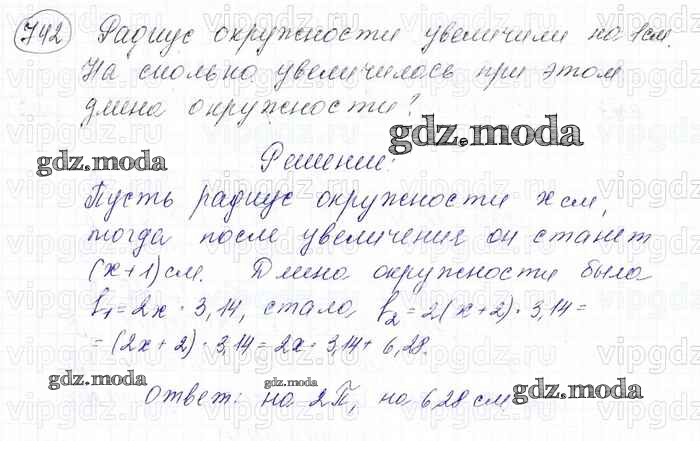 742 Радиус окружности увеличили на 1 см.
На сколько увеличилась при этом
длина окружности?
gdz.moda
gdz.moda
Решение:
Пусть радиус окружности x см,
тогда после увеличения он станет
(x+1) см. Длина окружности была
l₁ = 2x · 3,14, стала l₂ = 2(x+2) · 3,14 =
= (2x + 2) · 3,14 = 2x · 3,14 + 6,28.
gdz.moda
gdz.moda
gdz.moda
Ответ: на 2π, на 6,28 см